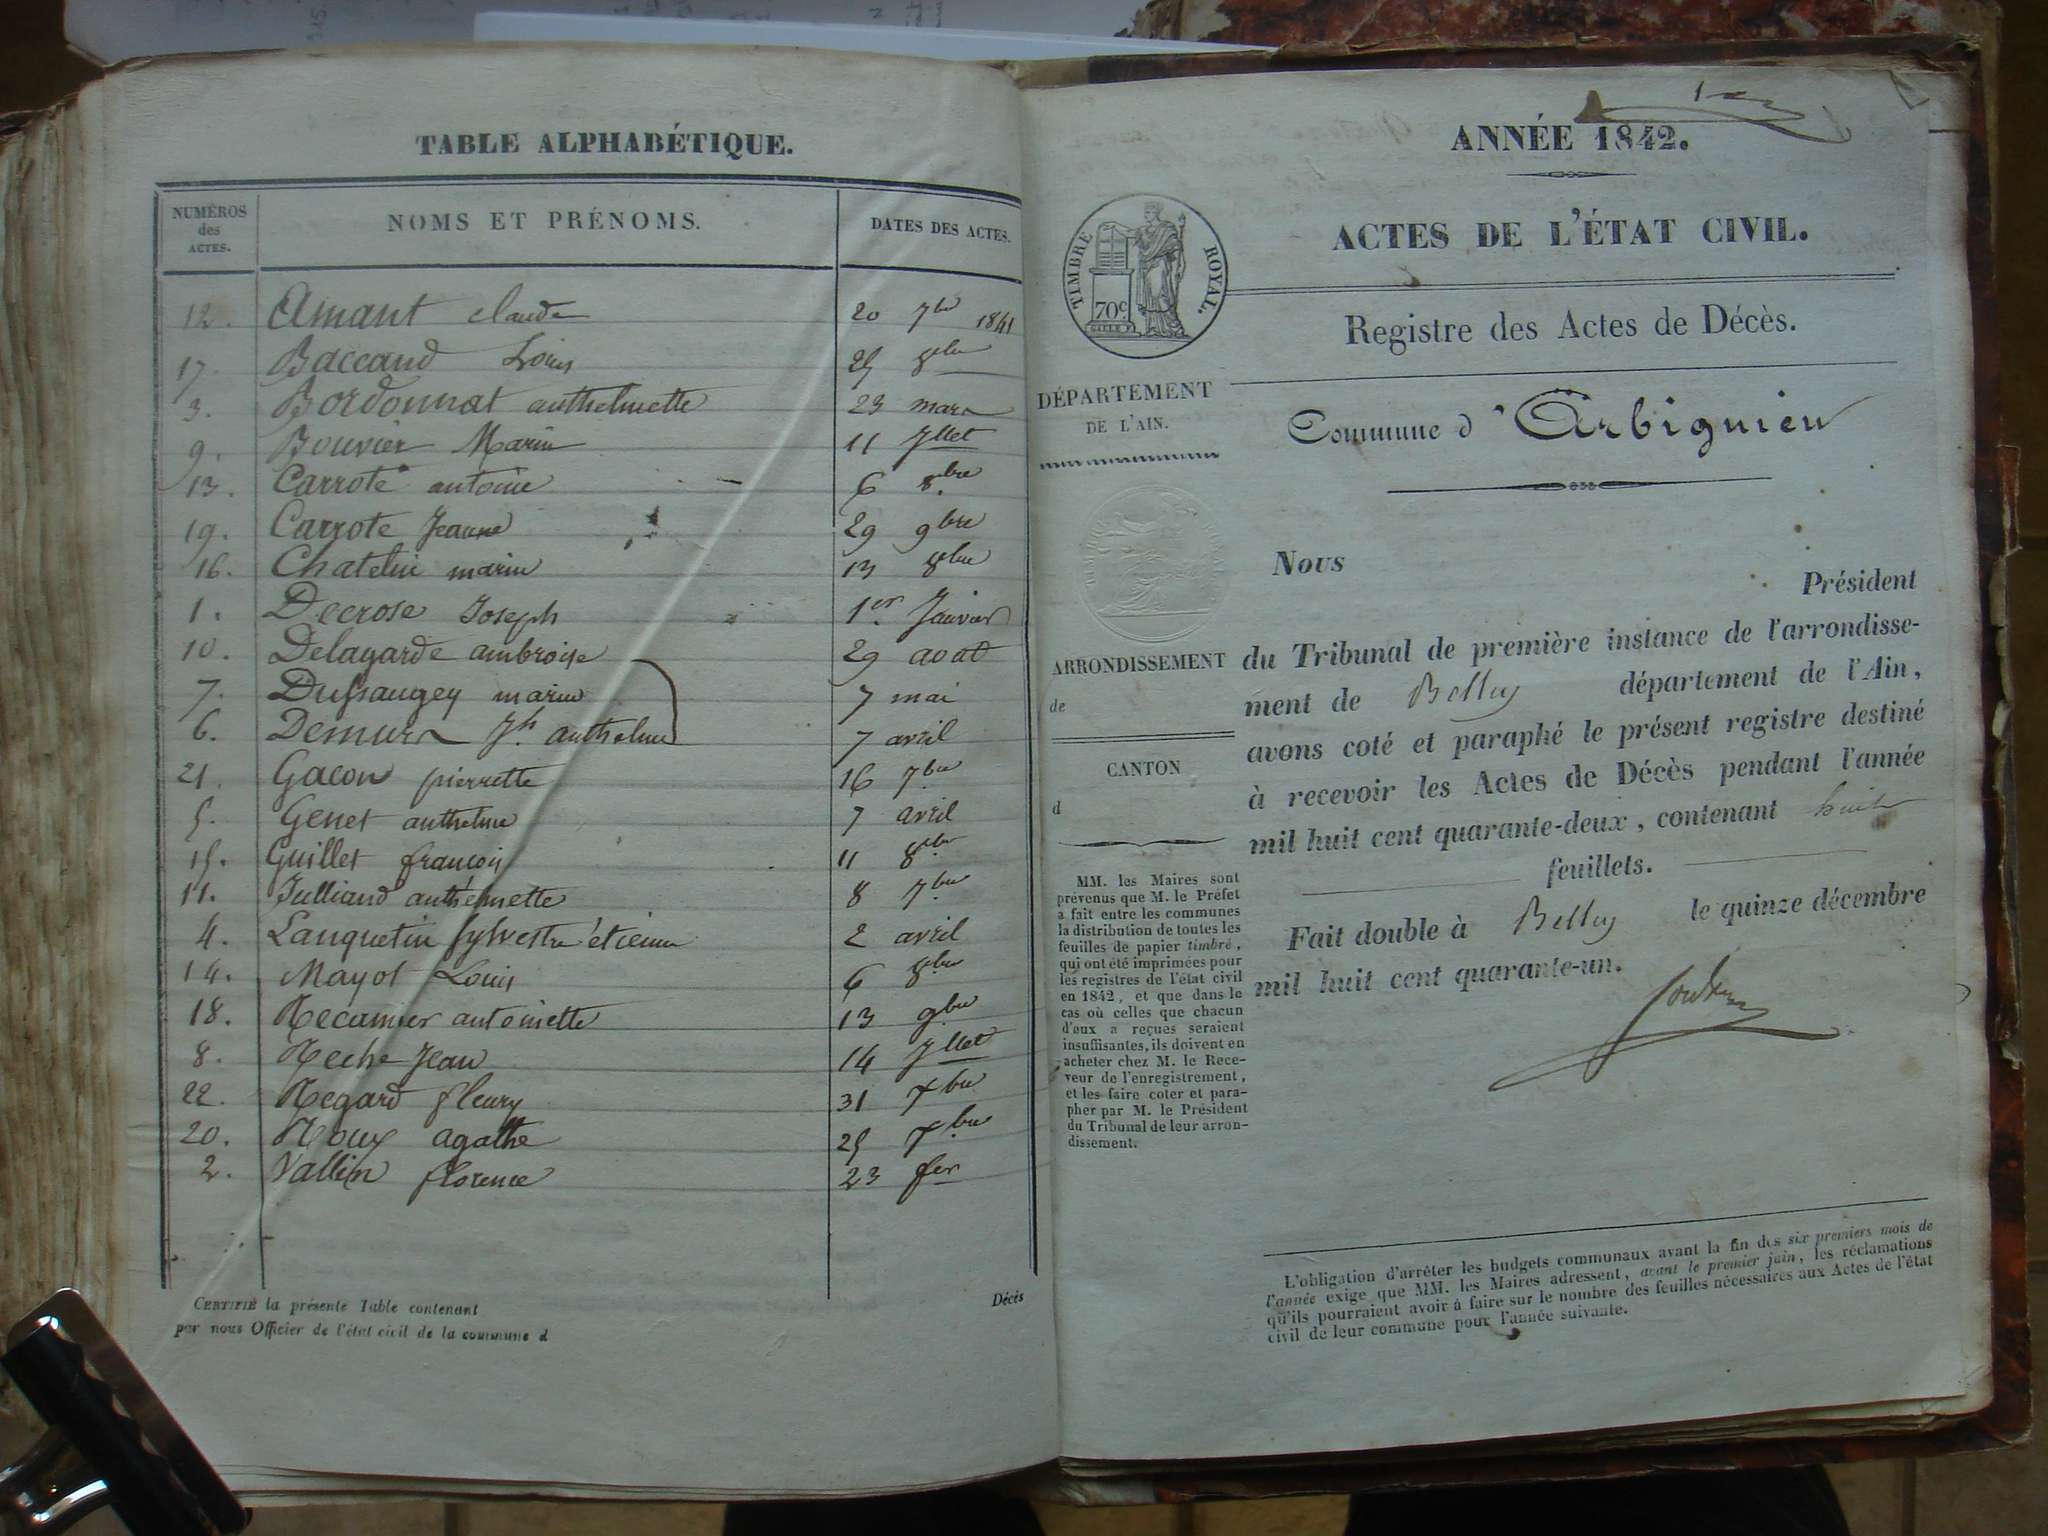 TABLE ALPHABÉTIQUE.
NUMÉROS des ACTES. NOMS ET PRÉNOMS. DATES DES ACTES.
12. Amant Claude 20 7bre 1841
17. Baccand Louis 25 8bre
3. Bordonnat anthelmette 23 mars
9. Bouvier Marin 11 Jllet
13. Carrote antoine 6 8bre
19. Carrote Jeanne 29 9bre
16. Chatelin marin 13 8bre
1. Decrose Joseph 1er Janvier
10. Delagarde ambroise 29 aout
7. Dussaugey marin 7 mai
6. Demurs Jh anthelme 7 avril
21. Gacon pierrette 16 7bre
5. Genet anthelme 7 avril
15. Guillet francois 11 8bre
11. Julliand anthelmette 8 7bre
4. Lanquetin Sylvestre étienne 2 avril
14. Mayot Louis 6 8bre
18. Recamier antoinette 13 9bre
8. Reche Jean 14 Jllet
22. Regard fleury 31 Xbre
20. Roux agathe 25 Xbre
2. Vallin florence 23 fer
CERTIFIÉ la présente Table contenant Décès
par nous Officier de l'état civil de la commune d
ANNÉE 1842.
ACTES DE L'ÉTAT CIVIL.
TIMBRE ROYAL.
70c
Registre des Actes de Décès.
DÉPARTEMENT
DE L'AIN.
Commune d'Arbignieu
Nous Président
du Tribunal de première instance de l'arrondisse-
ment de Belley département de l'Ain,
avons coté et paraphé le présent registre destiné
à recevoir les Actes de Décès pendant l'année
mil huit cent quarante-deux, contenant huit
feuillets.
Fait double à Belley le quinze décembre
mil huit cent quarante-un.
ARRONDISSEMENT
de
CANTON
d
MM. les Maires sont
prévenus que M. le Préfet
a fait entre les communes
la distribution de toutes les
feuilles de papier timbré,
qui ont été imprimées pour
les registres de l'état civil
en 1842, et que dans le
cas où celles que chacun
d'eux a reçues seraient
insuffisantes, ils doivent en
acheter chez M. le Rece-
veur de l'enregistrement,
et les faire coter et para-
pher par M. le Président
du Tribunal de leur arron-
dissement.
L'obligation d'arrêter les budgets communaux avant la fin des six premiers mois de
l'année exige que MM. les Maires adressent, avant le premier juin, les réclamations
qu'ils pourraient avoir à faire sur le nombre des feuilles nécessaires aux Actes de l'état
civil de leur commune pour l'année suivante.